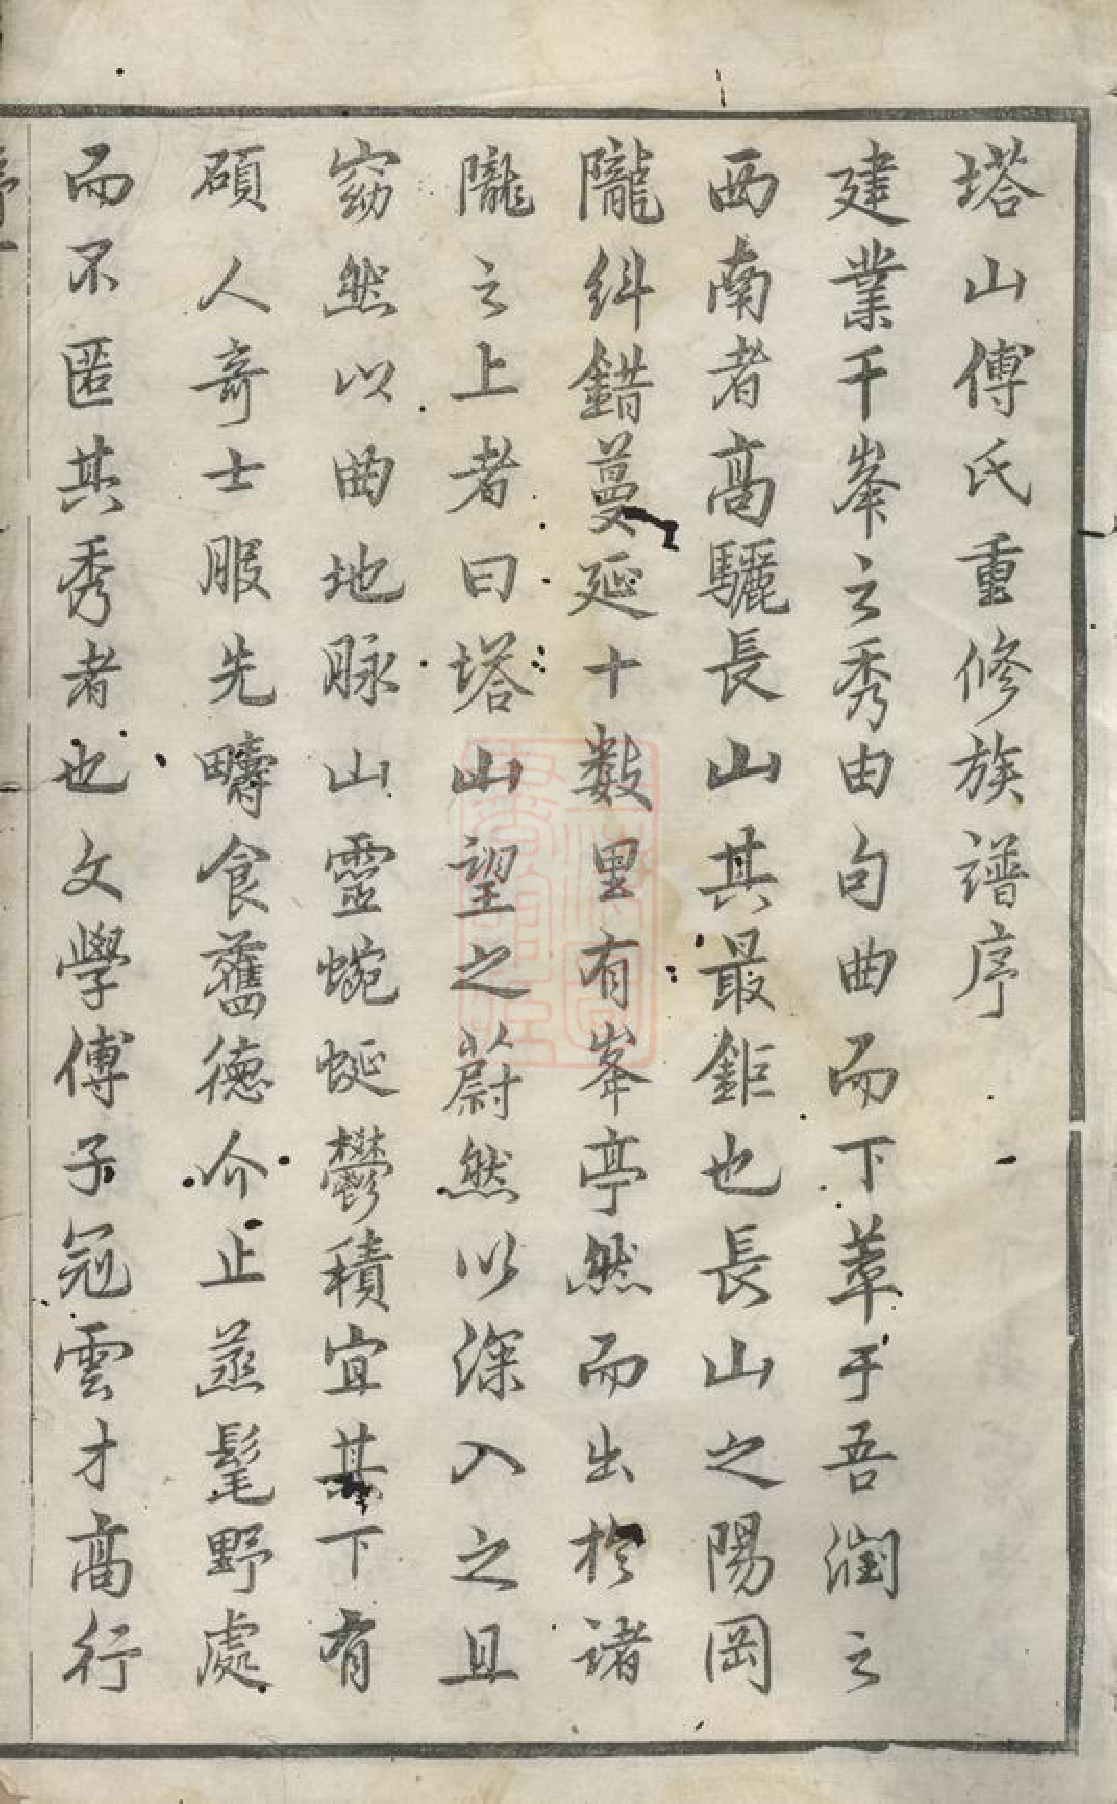 塔山傅氏重修族譜序
建業千峯之秀由句曲而下萃于吾潤之
西南者高驪長山其最鉅也長山之陽岡
隴糾錯蔓延十數里有峯亭然而出於諸
隴之上者曰塔山望之蔚然以深入之且
窈然以曲地脉山靈蜿蜒鬱積宜其下有
碩人奇士服先疇食舊德介止烝髦野處
而不匿其秀者也文學傅子冠雲才高行